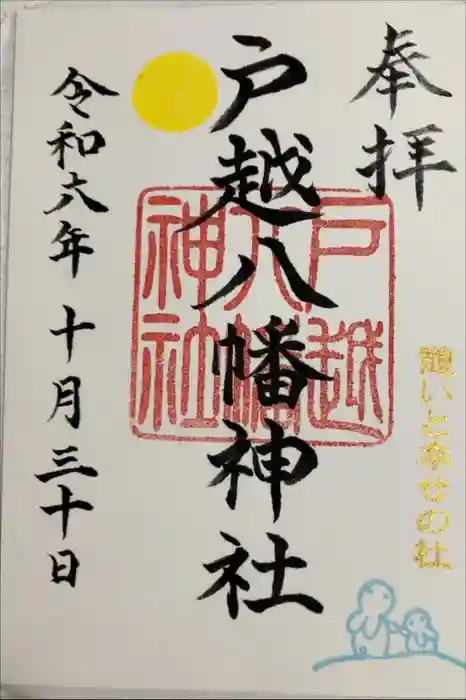 奉拝
戸越八幡神社
戸越八幡神社
令和六年十月三十日
憩いと幸せの社